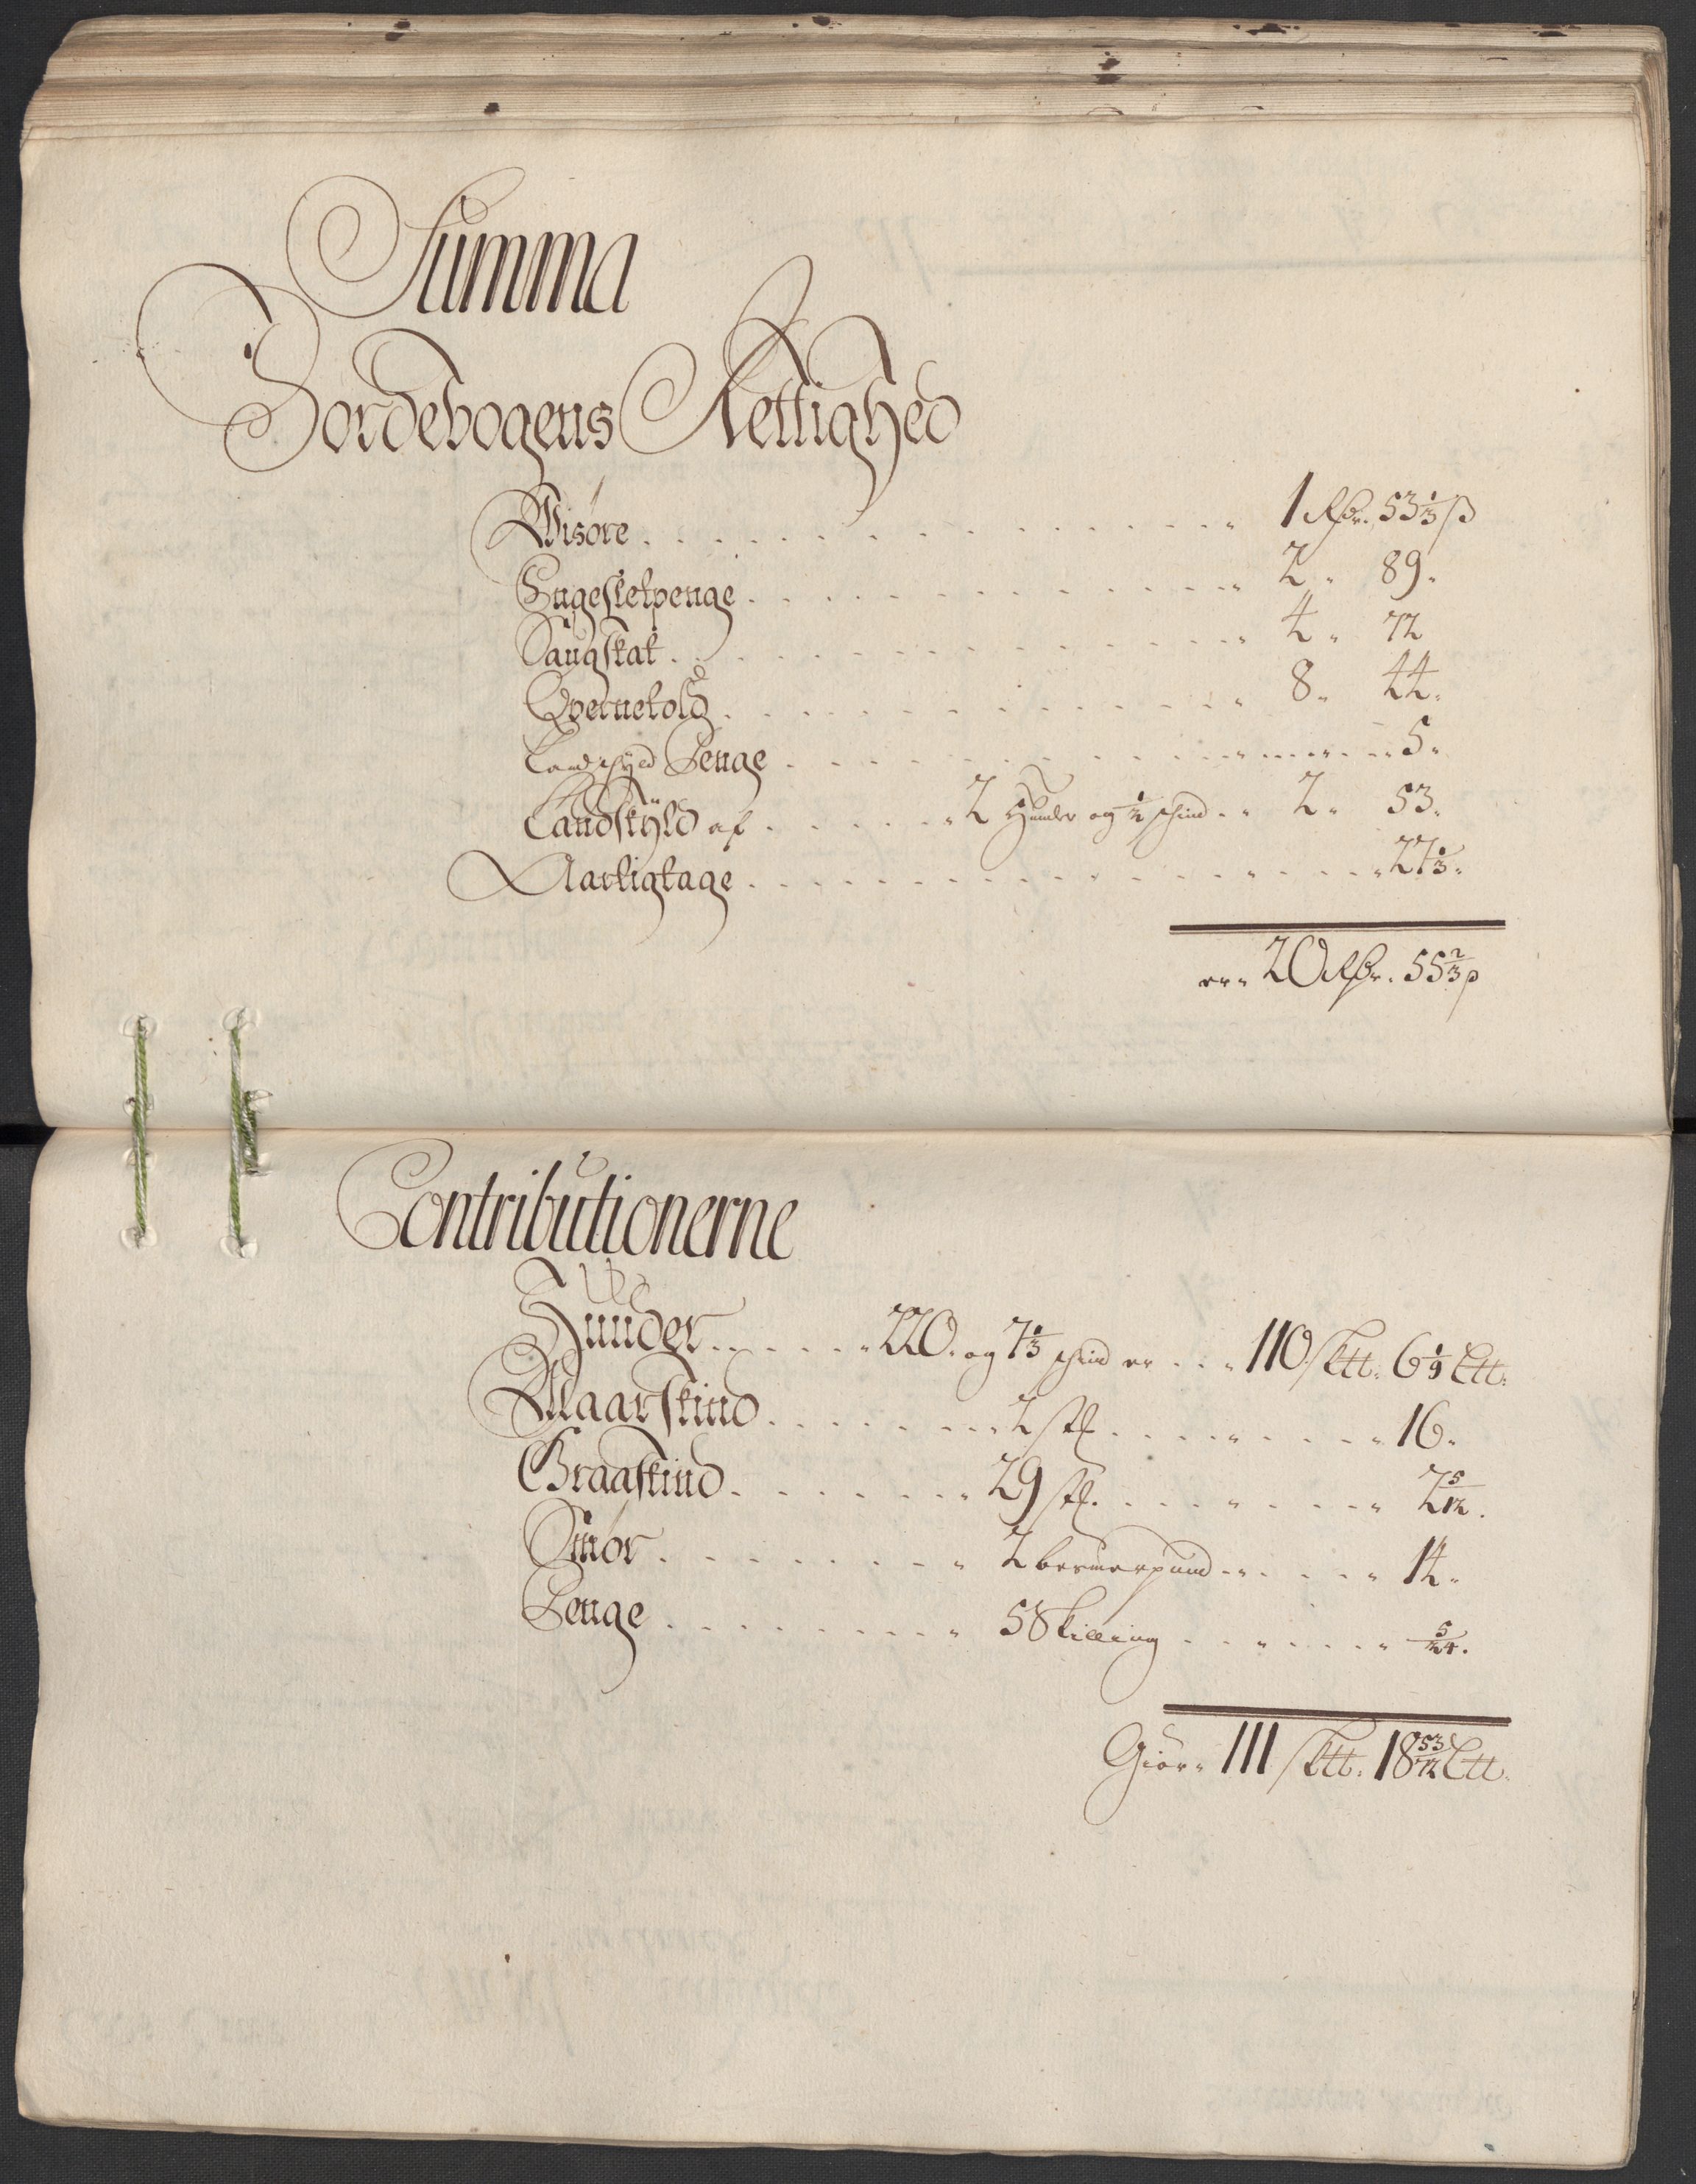 Summa
Jordebogens Rettighed
Wisøre . . . . . 1 Rdr. 53 1/3 ß
Engesletpenge . . . . . 2 " 89.
Saugskat . . . . . 4 " 72
Qvernetold . . . . . 8 " 44.
Landskyld Penge . . . . . 5.
Landskÿld af . . . . . 2 Hunder og 1/2 schind . . 2 " 53.
Aarligtage . . . . . 27 1/3.
er " 20 Rdr. 55 2/3 ß
Contributionerne
Hunder . . . . . 220. og 7 1/3 schind er . . . 110 sktt. 6 1/9 Ltt.
Maarskind . . . . . 2 stk. . . . . . 16.
Graaskind . . . . . 29 stk. . . . . . 2 5/12.
Smør . . . . . 2 besmerpund . . . . . 14.
Penge . . . . . 5 Skilling . . . . . 5/24.
Giør " 111 sktt. 18 53/72 Ltt.